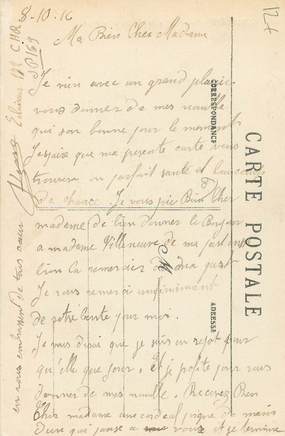 8-10-16
12f
Ma Bien Cher Madame
Je vien avec un grand plaisir
vous donner de mes nouvelle
qui son bonne pour le moment
J'espaire que ma presente carte vous
trouvera en parfait santé et
de chance. Je vous prie Bien Cher
madame de bien donner le Bonjour
a madame Villeneuve de ma part
bien la remercier de ma part
Je vous remerci infiniment
de votre bonté pour moi.
Je vous dirai que je suis en repot pour
quelle que jour. et je profite pour vous
donner de mes nouvelle. Recevez Bien
Cher madame une cordial pogne de mains
d'une qui panse a vous et je termine
en vous embrassant de tous cœur
CARTE POSTALE
CORRESPONDANCE
ADRESSE